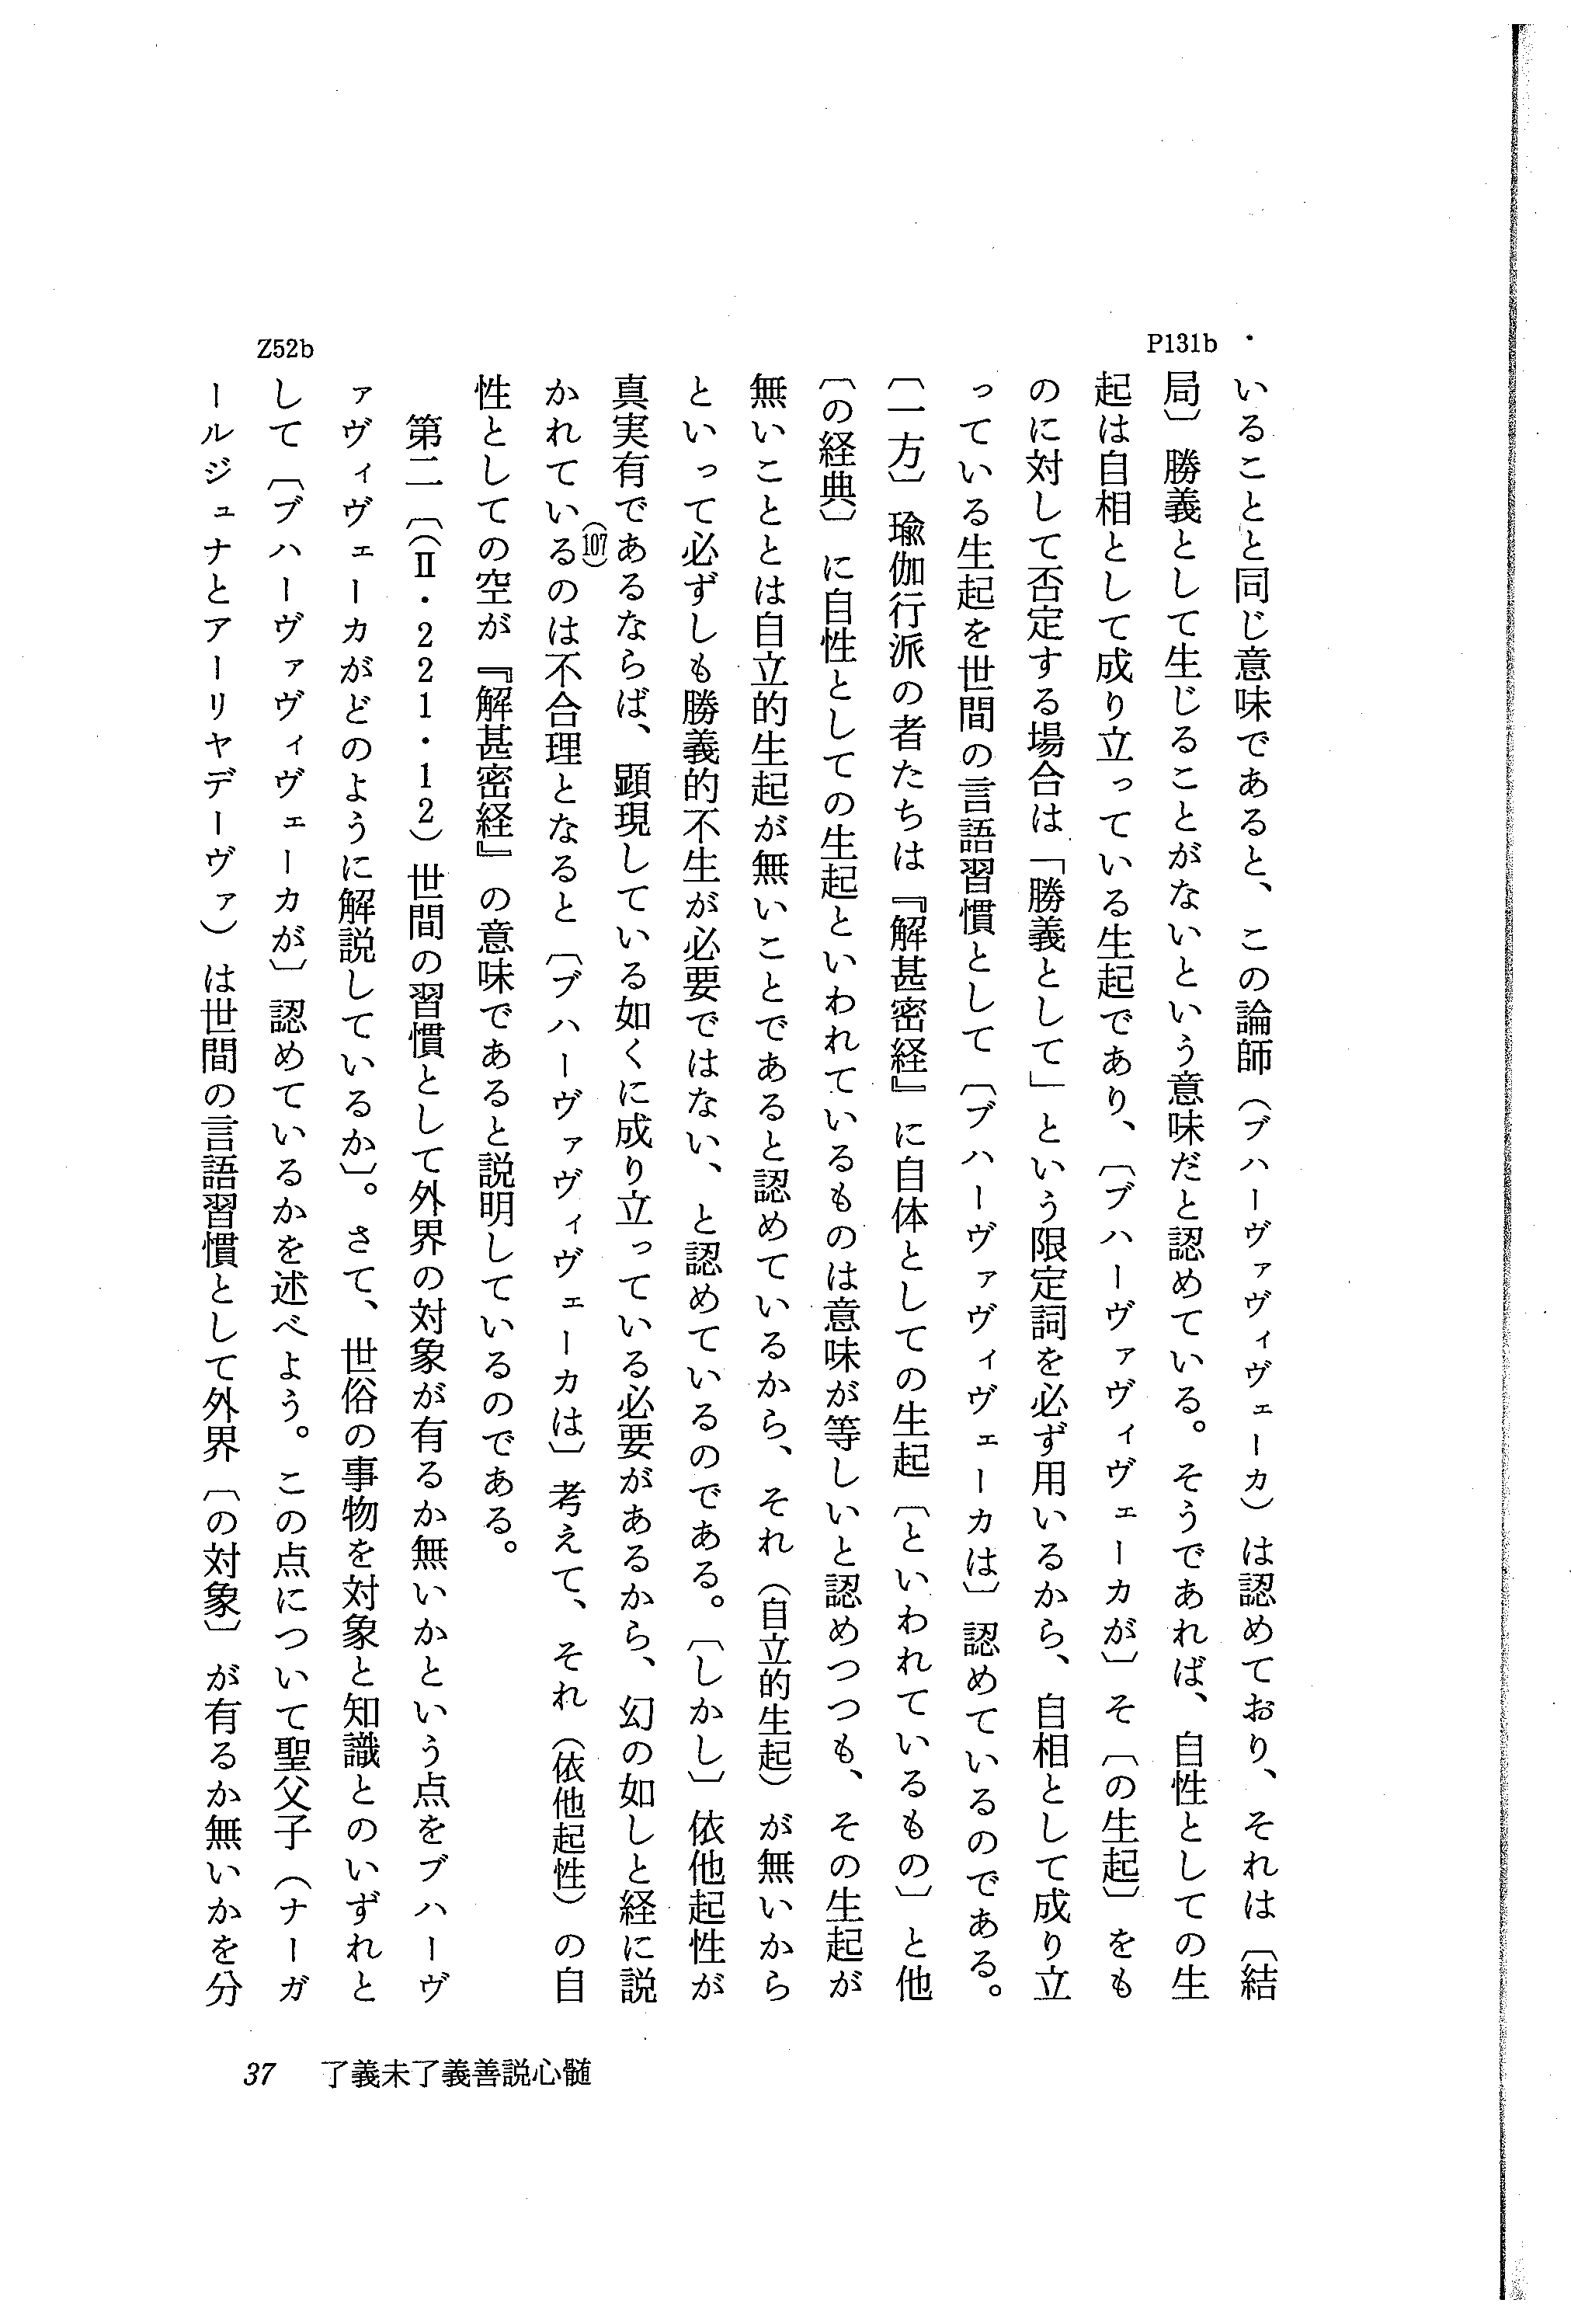 P131b
いることと同じ意味であると、この論師（ブハーヴァヴィヴェーカ）は認めており、それは〔結
局〕勝義として生じることがないという意味だと認めている。そうであれば、自性としての生
起は自相として成り立っている生起であり、〔ブハーヴァヴィヴェーカが〕そ〔の生起〕をも
のに対して否定する場合は「勝義として」という限定詞を必ず用いるから、自相として成り立
っている生起を世間の言語習慣として〔ブハーヴァヴィヴェーカは〕認めているのである。
〔一方〕瑜伽行派の者たちは『解甚密経』に自体としての生起〔といわれているもの〕と他
〔の経典〕に自性としての生起といわれているものは意味が等しいと認めつつも、その生起が
無いこととは自立的生起が無いことであると認めているから、それ（自立的生起）が無いから
といって必ずしも勝義的不生が必要ではない、と認めているのである。〔しかし〕依他起性が
真実有であるならば、顕現している如くに成り立っている必要があるから、幻の如しと経に説
かれている(107)のは不合理となると〔ブハーヴァヴィヴェーカは〕考えて、それ（依他起性）の自
性としての空が『解甚密経』の意味であると説明しているのである。
第二〔（Ⅱ・221・12）世間の習慣として外界の対象が有るか無いかという点をブハーヴ
ァヴィヴェーカがどのように解説しているか〕。さて、世俗の事物を対象と知識とのいずれと
Z52b
して〔ブハーヴァヴィヴェーカが〕認めているかを述べよう。この点について聖父子（ナーガ
ールジュナとアーリヤデーヴァ）は世間の言語習慣として外界〔の対象〕が有るか無いかを分
37 了義未了義善説心髄